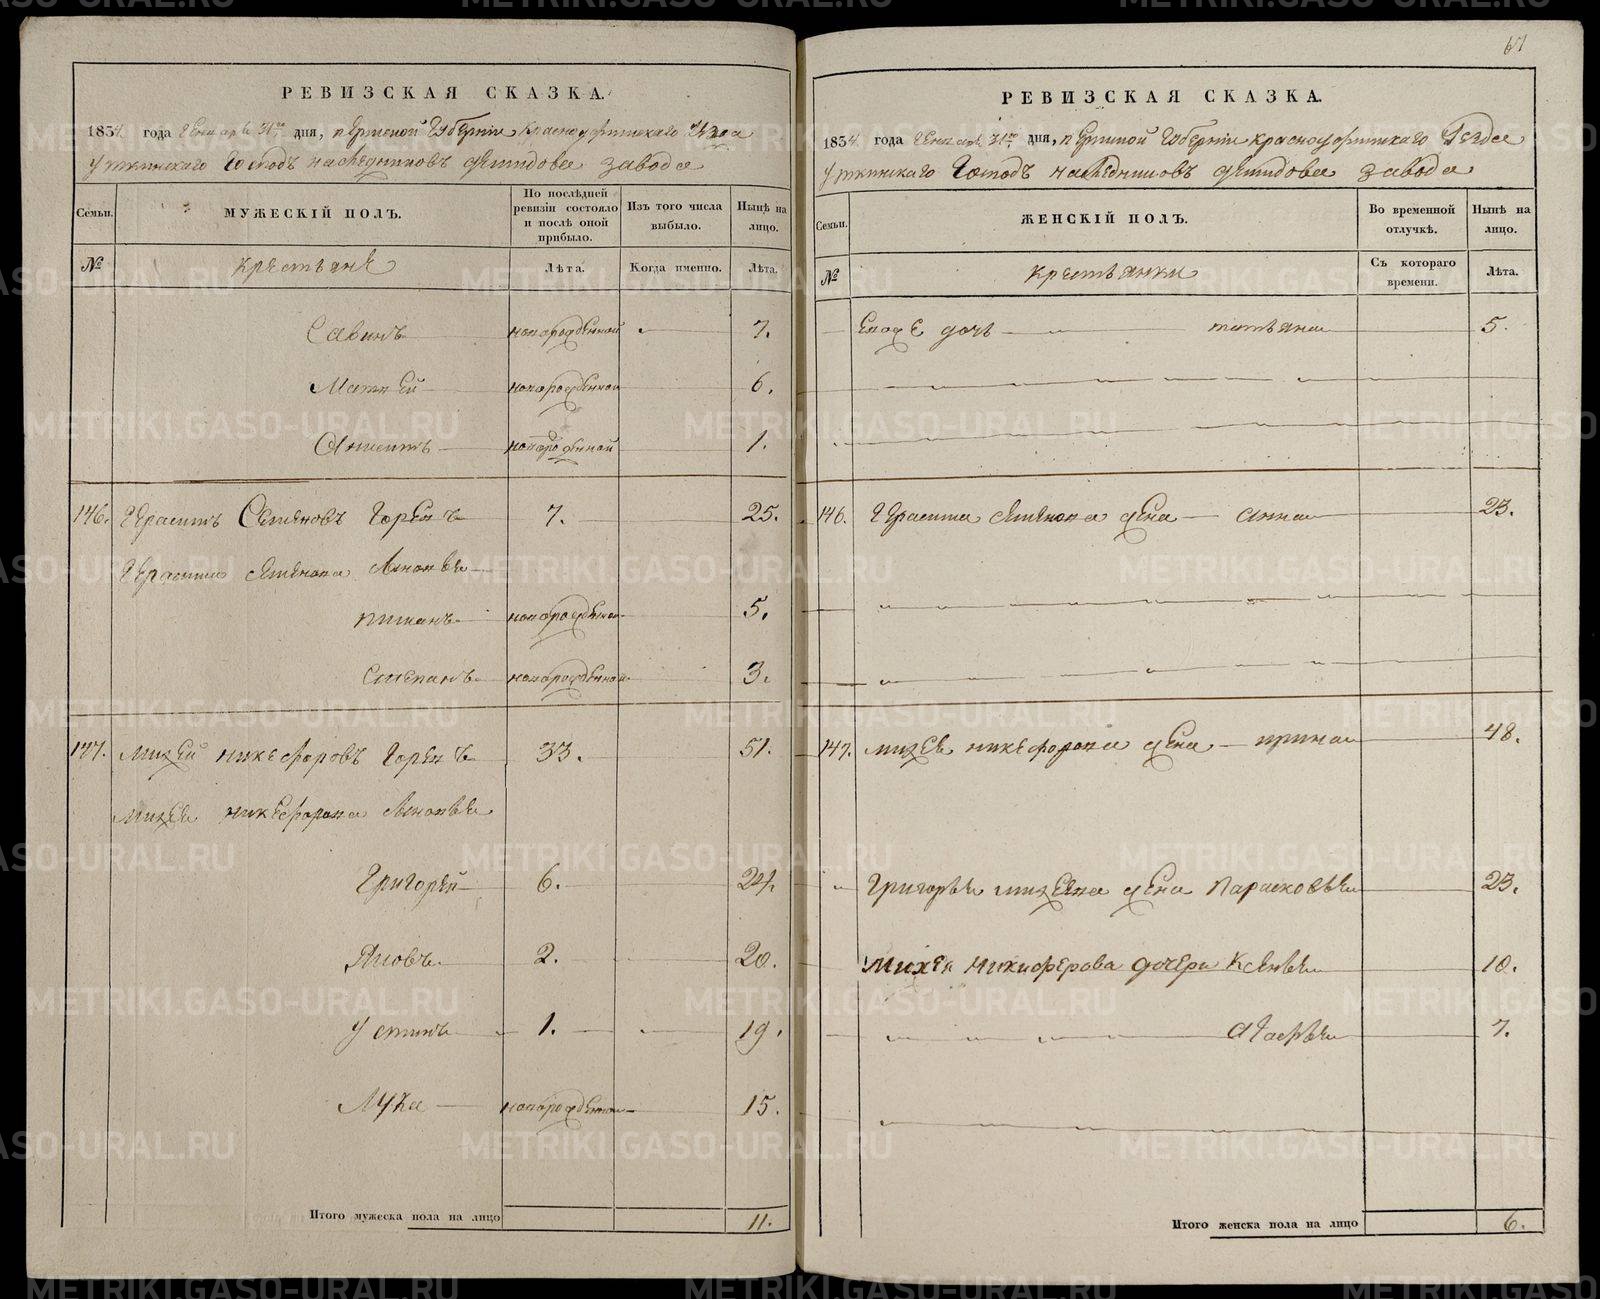 РЕВИЗСКАЯ СКАЗКА.
1834 года Генваря 31го дня, Пермской Губернии Красноуфимскаго Уезда
Уткинскаго Господъ наследниковъ Демидова завода
Семьи.
МУЖЕСКІЙ ПОЛЪ.
По послѣдней ревизіи состояло и послѣ оной прибыло.
Изъ того числа выбыло.
Нынѣ на лицо.
№
крестьяне
Лѣта.
Когда именно.
Лѣта.
Савинъ новорожденной 7.
Матвей новорожденной 6.
новорожденной 1.
146. Герасимъ Семеновъ 7. 25.
Герасима Семенова сыновья
новорожденной 5.
Степанъ новорожденной 3.
147. Михей Никефоровъ 33. 51.
Михея Никефорова сыновья
Григорей 6. 24.
Яковъ 2. 20.
Устинъ 1. 19.
Лука новорожденной 15.
Итого мужеска пола на лицо 11.
67
РЕВИЗСКАЯ СКАЗКА.
1834 года Генваря 31го дня, Пермской Губернии Красноуфимскаго Уезда
Уткинскаго Господъ наследниковъ Демидова завода
Семьи.
ЖЕНСКІЙ ПОЛЪ.
Во временной отлучкѣ.
Нынѣ на лицо.
№
крестьянки
Съ котораго времени.
Лѣта.
Евоже дочь татьяна 5.
146. Герасима Семенова жена анна 23.
147. Михея Никефорова жена ирина 48.
Григорья михеева жена парасковья 23.
Михея Никифорова дочери Ксенья 10.
7.
Итого женска пола на лицо 6.
METRIKI.GASO-URAL.RU